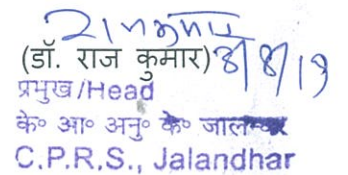 राजकुमार
(डॉ. राज कुमार) 8/8/19
प्रमुख/Head
के॰ आ॰ अनु॰ के॰ जालन्धर
C.P.R.S., Jalandhar